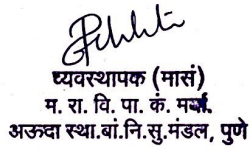 व्यवस्थापक (मासं)
म. रा. वि. पा. कं. मर्या.
अऊदा स्था.बां.नि.सु.मंडल, पुणे